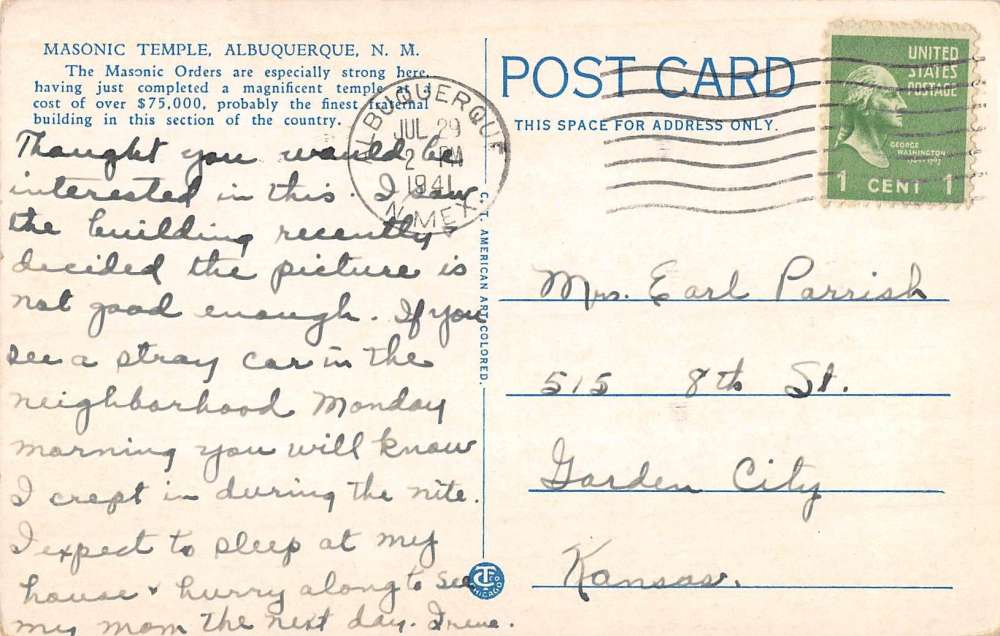 MASONIC TEMPLE, ALBUQUERQUE, N. M.
The Masonic Orders are especially strong here,
having just completed a magnificent temple at
cost of over $75,000, probably the finest fraternal
building in this section of the country.
Thought you would be
interested in this. I saw
the building recently,
decided the picture is
not good enough. If you
see a stray car in the
neighborhood Monday
morning you will know
I crept in during the nite.
I expect to sleep at my
house & hurry along to see
my mom the next day. Irene.
ALBUQUERQUE
JUL 29
2 PM
1941
N. MEX.
C. T. AMERICAN ART COLORED.
CT CO
CHICAGO
POST CARD
THIS SPACE FOR ADDRESS ONLY.
UNITED
STATES
POSTAGE
GEORGE
WASHINGTON
1 CENT 1
Mrs. Earl Parrish
515 8th St.
Garden City
Kansas.